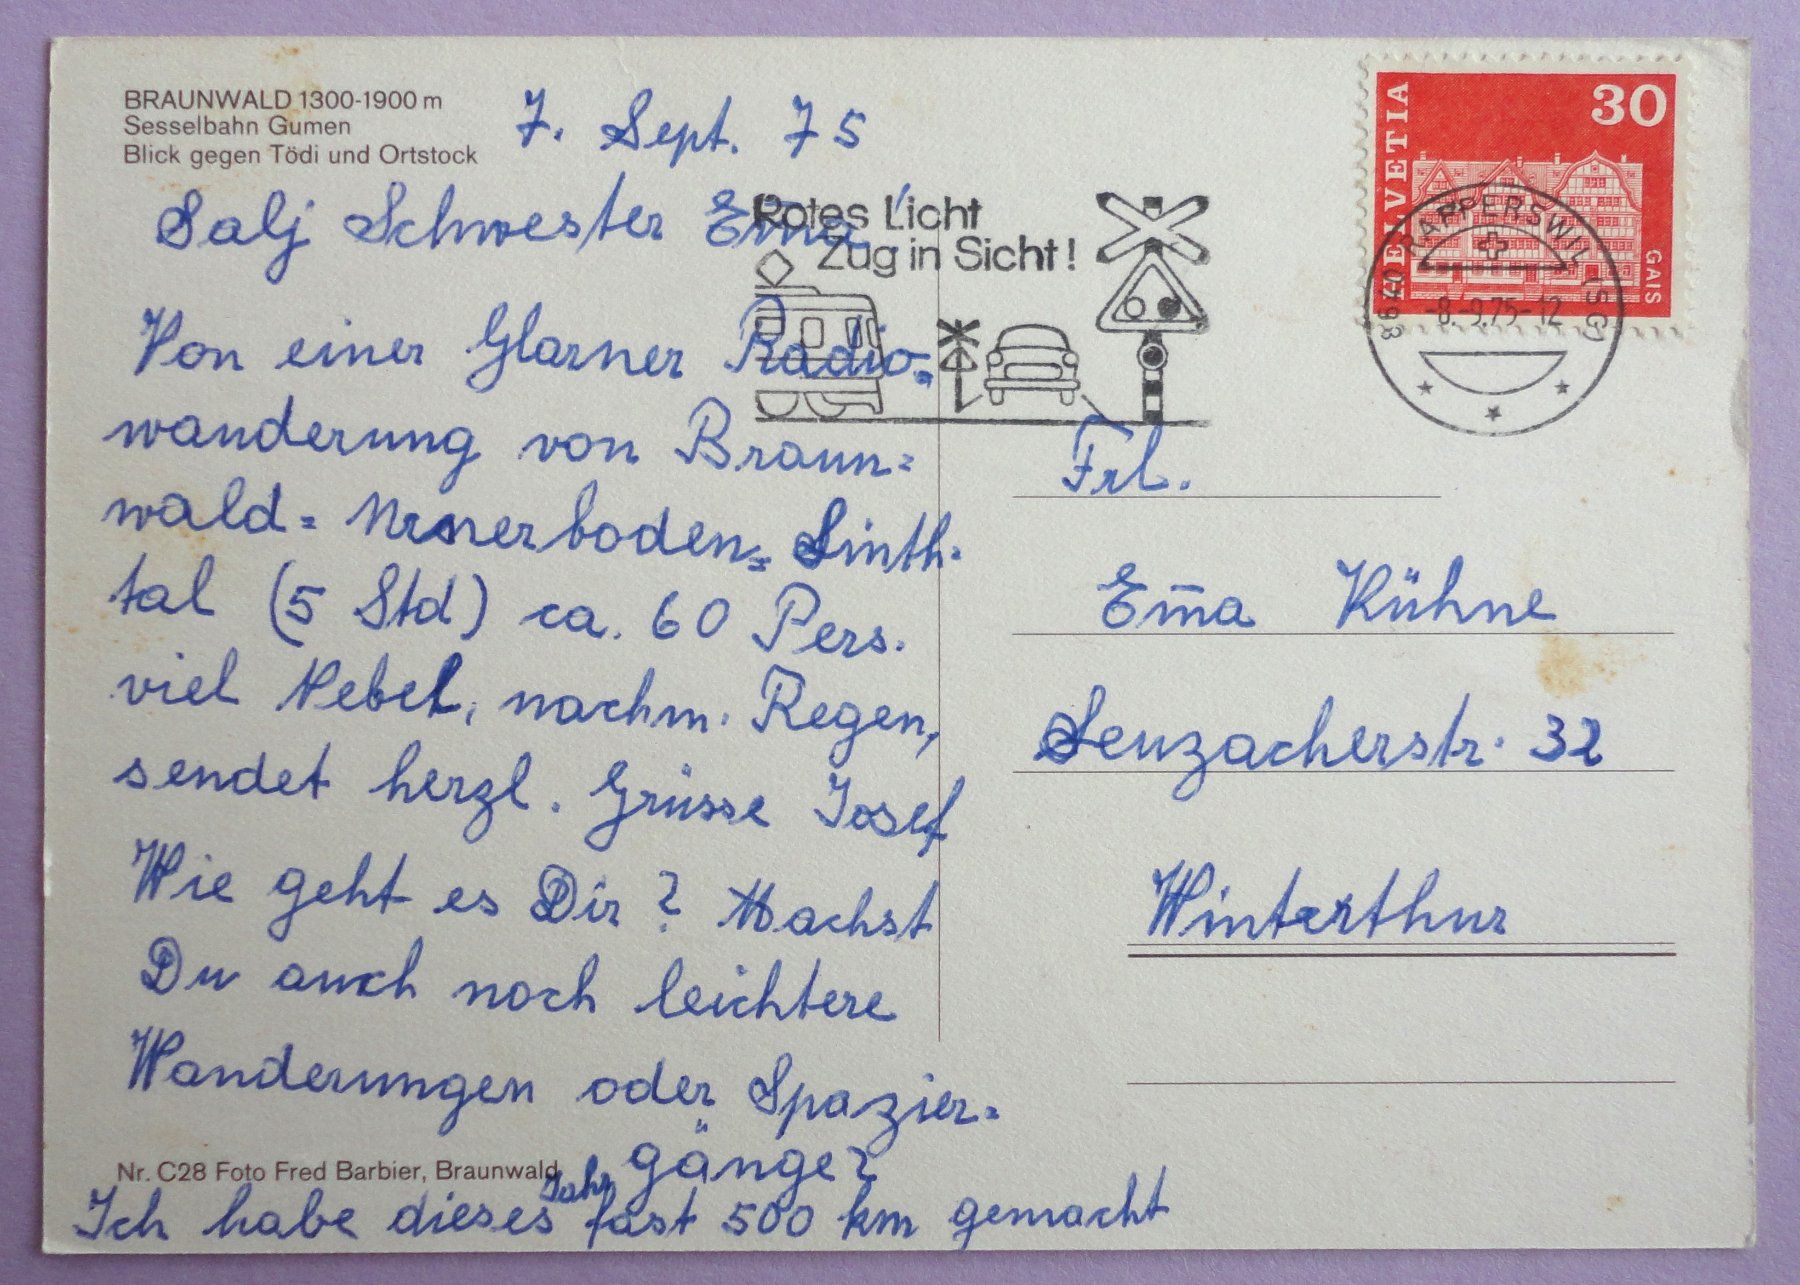 BRAUNWALD 1300-1900 m
Sesselbahn Gumen
Blick gegen Tödi und Ortstock
7. Sept. 75
Salj Schwester Em̄a
Von einer Glarner Radio=
wanderung von Braun=
wald= Urnerboden= Linth=
tal (5 Std) ca. 60 Pers.
viel Nebel, nachm. Regen,
sendet herzl. Grüsse Josef
Wie geht es Dir? Machst
Du auch noch leichtere
Wanderungen oder Spazier=
gänge?
Ich habe dieses Jahr fast 500 km gemacht
Nr. C28 Foto Fred Barbier, Braunwald
Rotes Licht
Zug in Sicht!
HELVETIA
30
GAIS
8640 RAPPERSWIL (SG)
-8.-9.75-12
Frl.
Em̄a Kühne
Seuzacherstr. 32
Winterthur